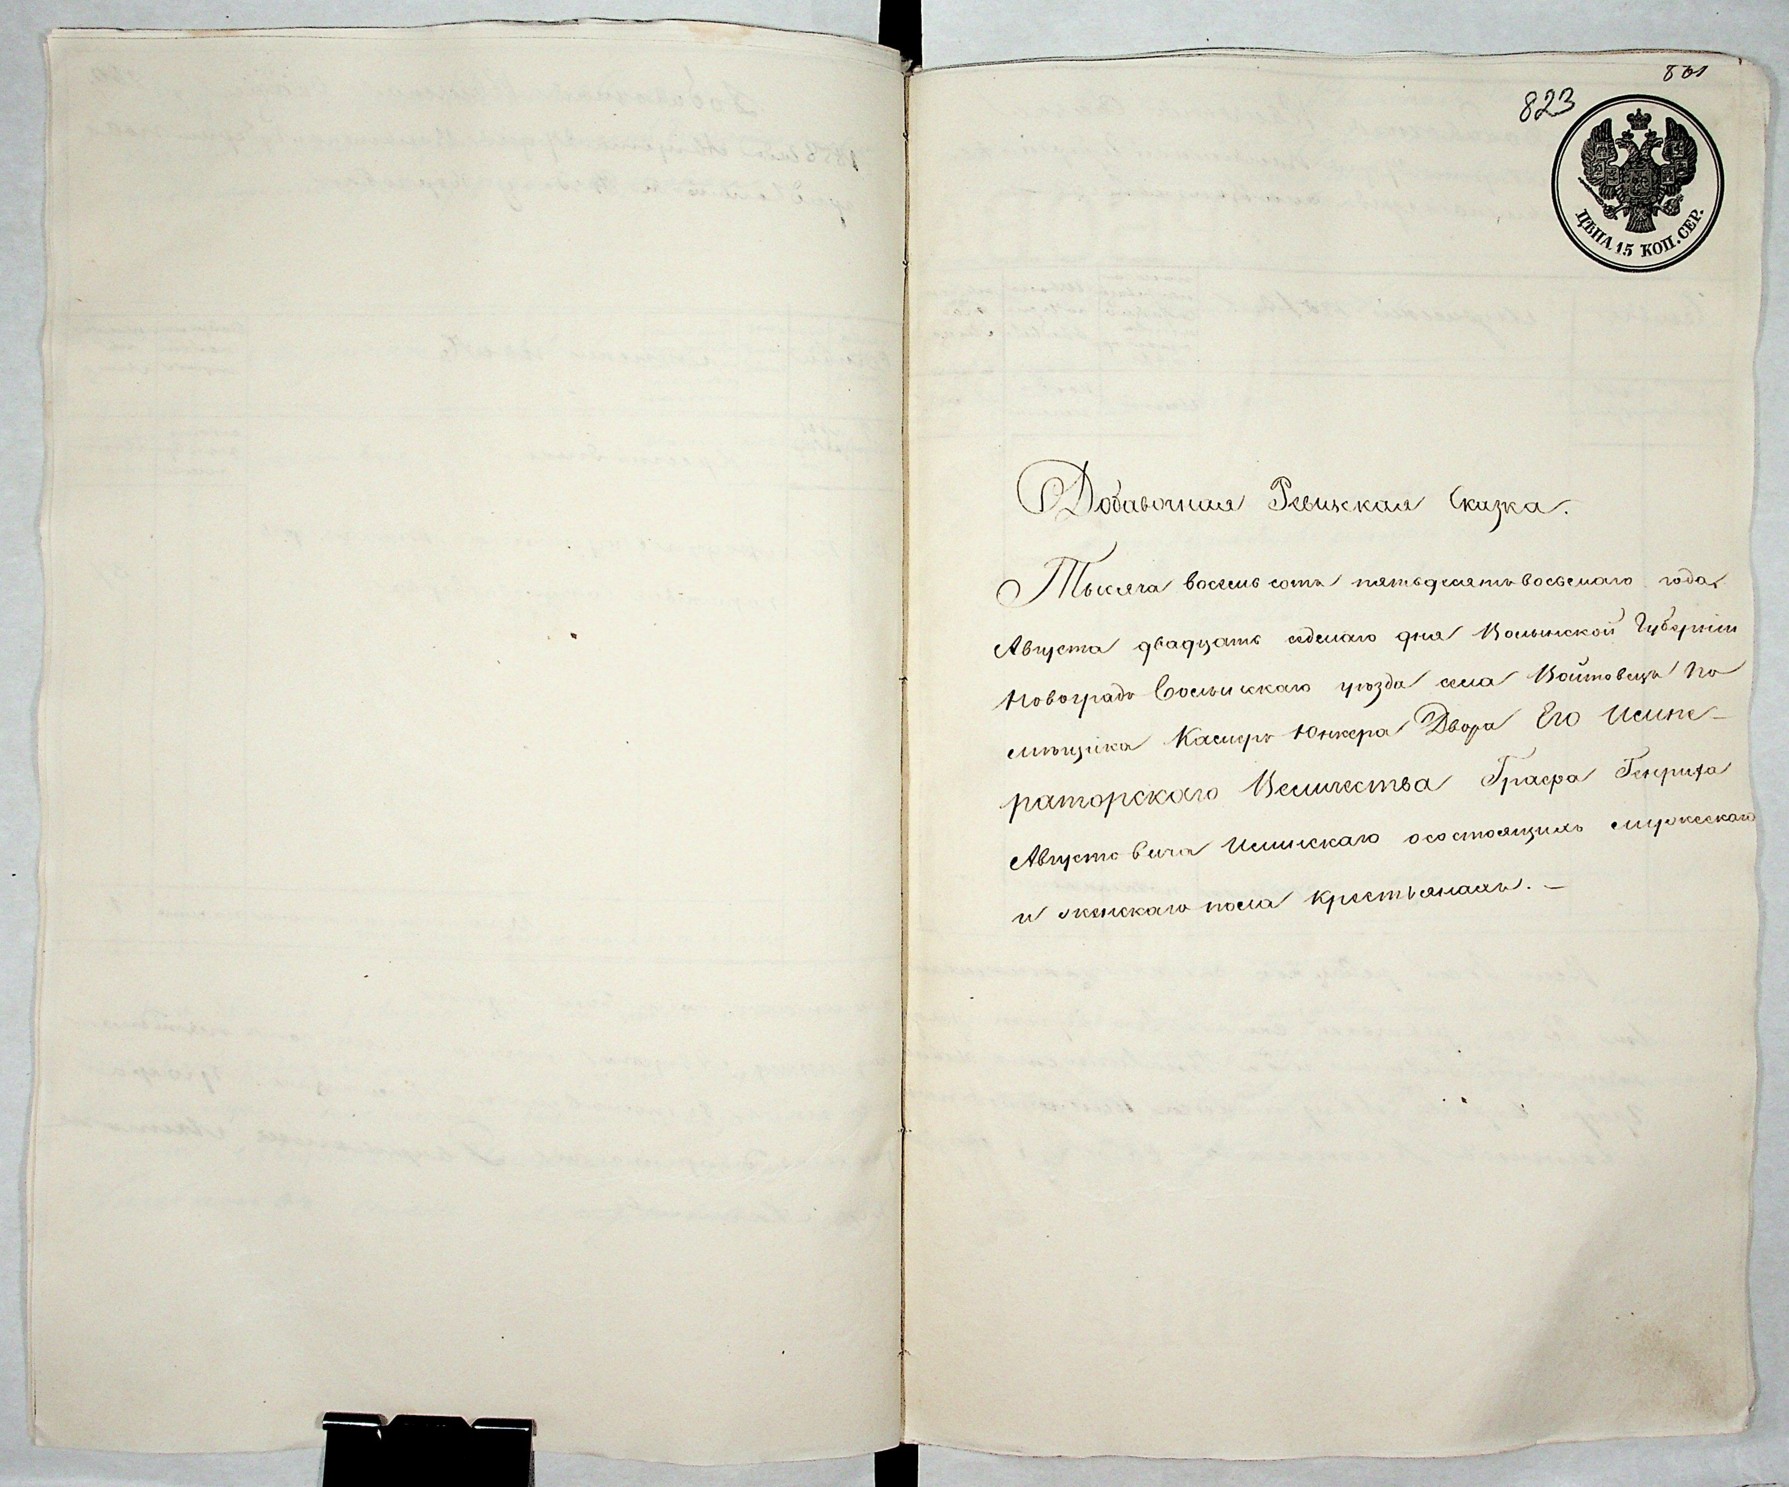 801
823
ЦѢНА 15 КОП. СЕР.
Добавочная Ревизская Сказка.
Тысяча восемь сотъ пятьдесятъ восьмаго года
Августа двадцать седмаго дня Волынской Губерніи
Новоградъ Волынскаго уѣзда села Войтовецъ По
мѣщика Камеръ Юнкера Двора Его Импе-
раторскаго Величества Графа Генриха
Августовича Илинскаго осостоящихъ мужескаго
и женскаго пола крестьянахъ. –